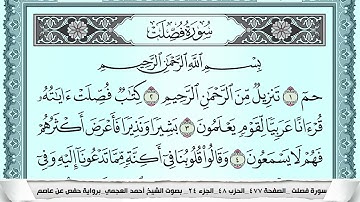 سُورَةُ فُصِّلَتْ
بِسْمِ اللَّهِ الرَّحْمَٰنِ الرَّحِيمِ
حمٓ ١ تَنزِيلٌ مِّنَ الرَّحْمَٰنِ الرَّحِيمِ ٢ كِتَٰبٌ فُصِّلَتْ ءَايَٰتُهُۥ
قُرْءَانًا عَرَبِيًّا لِّقَوْمٍ يَعْلَمُونَ ٣ بَشِيرًا وَنَذِيرًا فَأَعْرَضَ أَكْثَرُهُمْ
فَهُمْ لَا يَسْمَعُونَ ٤ وَقَالُوا۟ قُلُوبُنَا فِىٓ أَكِنَّةٍ مِّمَّا تَدْعُونَآ إِلَيْهِ وَفِىٓ
سورة فصلت - الصفحة ٤٧٧ - الحزب ٤٨ - الجزء ٢٤ - بصوت الشيخ احمد العجمي - برواية حفص عن عاصم